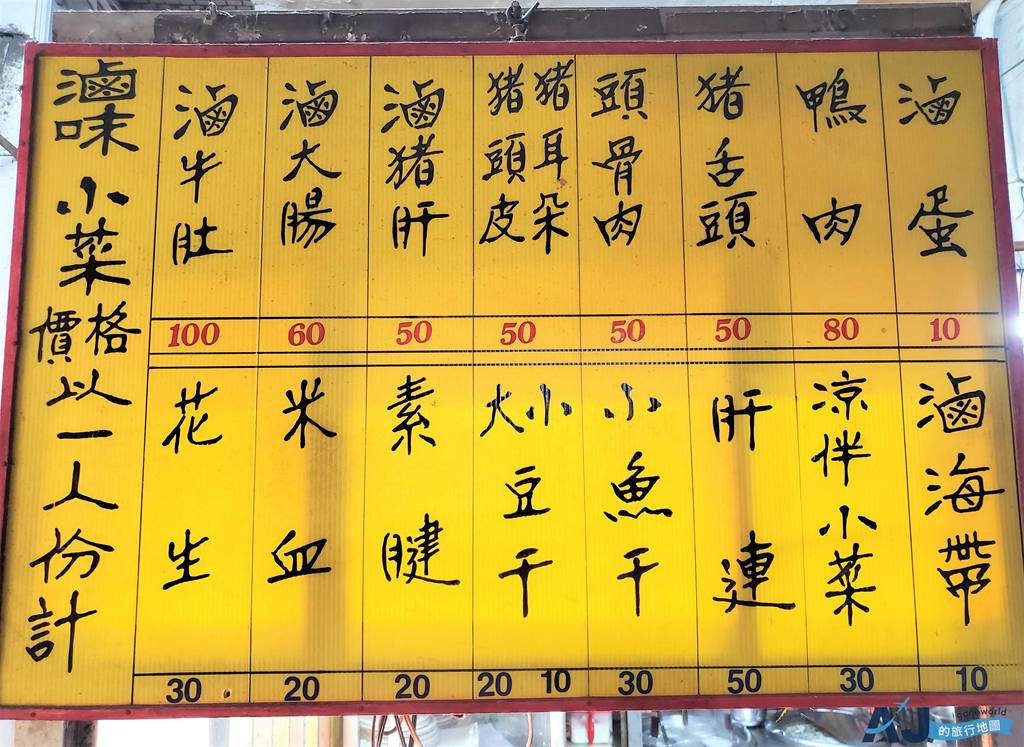 滷味小菜價格以一人份計
滷牛肚 100
滷大腸 60
滷猪肝 50
猪頭皮 猪耳朵 50
頭骨肉 50
猪舌頭 50
鴨肉 80
滷蛋 10
花生 30
米血 20
素腱 20
大小豆干 20 10
小魚干 30
肝連 50
涼伴小菜 30
滷海帶 10
AJ的旅行地圖